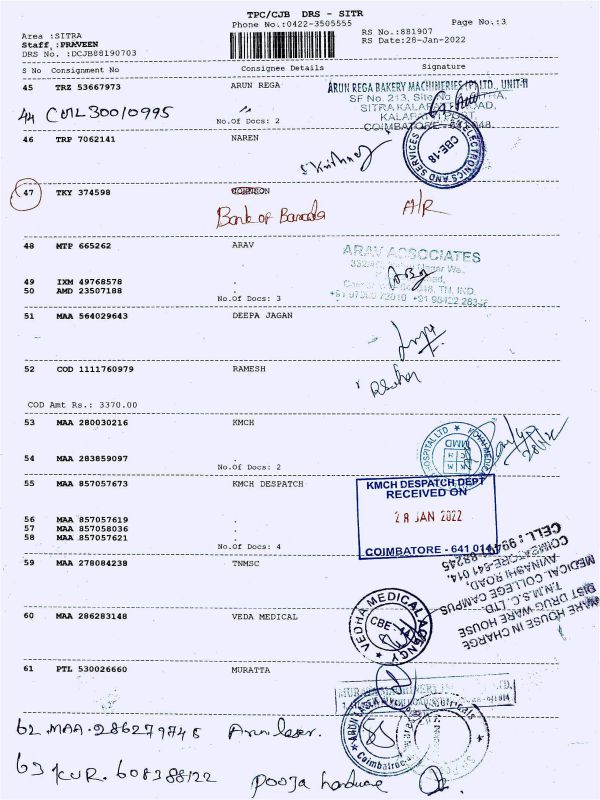 TPC/CJB DRS - SITR
Phone No.:0422-3505555
Page No.:3
Area :SITRA
Staff :PRAVEEN
DRS No. :DCJB88190703
RS No.:881907
RS Date:28-Jan-2022
S No Consignment No Consignee Details Signature
45 TRZ 53667973 ARUN REGA
ARUN REGA BAKERY MACHINERIES (P) LTD., UNIT-II
SF No. 213,
SITRA
KALAPATTI POST,
COIMBATORE - 641 048
44 CML 30010995
No.Of Docs: 2
46 TRP 7062141 NAREN
ELECTRONICS AND SERVICES
CBE-18
47 TKY 374598
Bank of Baroda A/R
48 MTP 665262 ARAV
ARAV ASSOCIATES
49 IXM 49768578 .
50 AMD 23507188 .
No.Of Docs: 3
51 MAA 564029643 DEEPA JAGAN
52 COD 1111760979 RAMESH
COD Amt Rs.: 3370.00
53 MAA 280030216 KMCH
HOSPITAL LTD
MMD
54 MAA 283859097 .
No.Of Docs: 2
55 MAA 857057673 KMCH DESPATCH
KMCH DESPATCH DEPT
RECEIVED ON
28 JAN 2022
COIMBATORE - 641 014
56 MAA 857057619 .
57 MAA 857058036 .
58 MAA 857057621 .
No.Of Docs: 4
59 MAA 278084238 TNMSC
WARE HOUSE IN CHARGE
DIST DRUG WARE HOUSE
T.N.M.S.C. LTD
MEDICAL COLLEGE CAMPUS
AVINASHI ROAD,
COIMBATORE-641 014.
60 MAA 286283148 VEDA MEDICAL
VEDHA MEDICAL AGENCY
CBE - 14
61 PTL 530026660 MURATTA
62 MAA. 286279748 Arun laser.
ARUN LASER
Coimbatore
63 KUR. 608388122 Pooja hardware